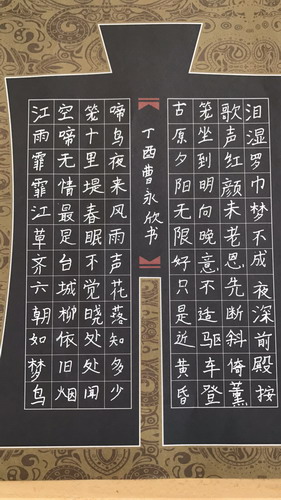 泪湿罗巾梦不成夜深前殿按
歌声红颜未老恩先断斜倚薰
笼坐到明向晚意不适驱车登
古原夕阳无限好只是近黄昏
丁酉曹永欣书
江雨霏霏江草齐六朝如梦鸟
空啼无情最是台城柳依旧烟
笼十里堤春眠不觉晓处处闻
啼鸟夜来风雨声花落知多少